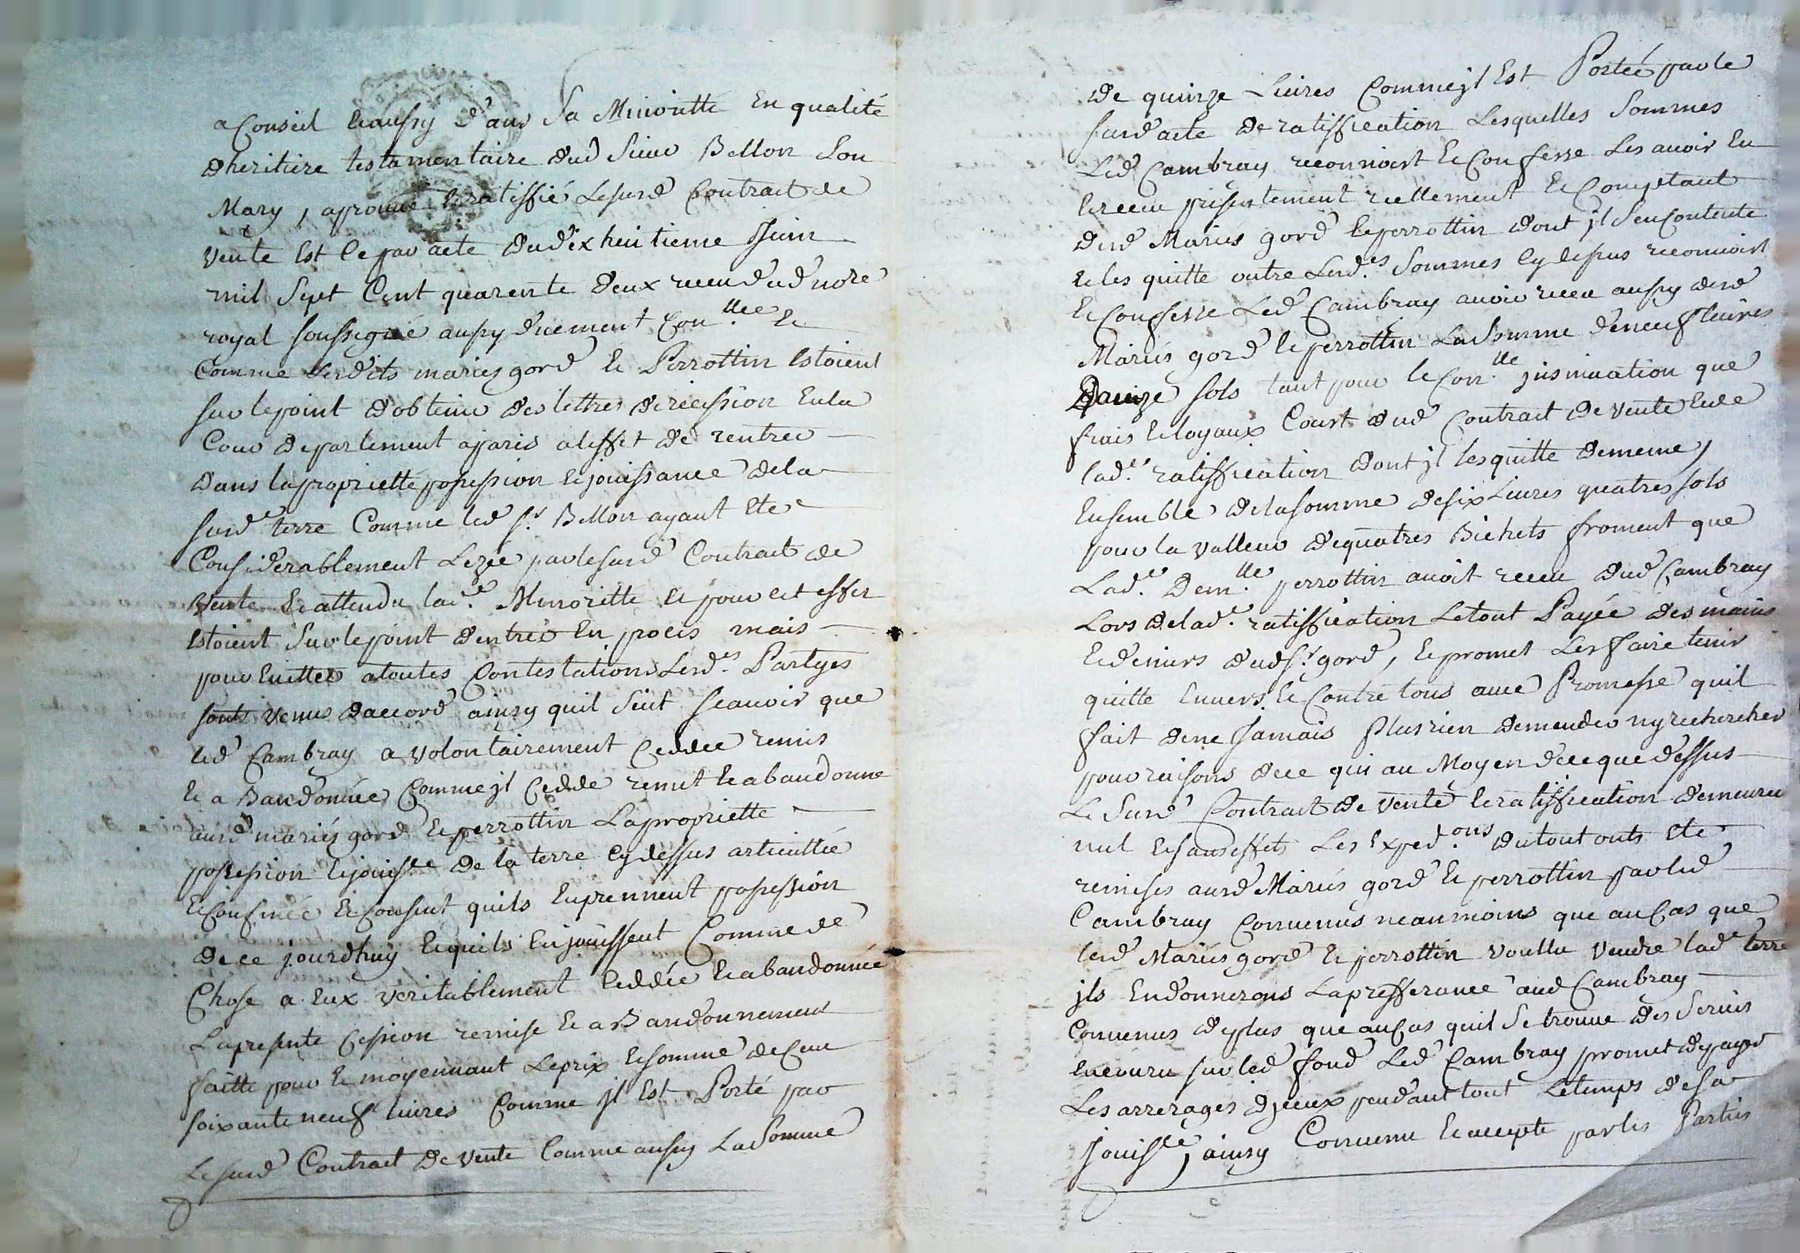 a Conseil et aussy dans sa Minoritté En qualité
dheritiere testamentaire dud Sieur Bellon Son
Mary, aprouvé et ratiffié Lesusd Contrait de
vente Est ce par acte du dixhuitieme Juin
mil Sept Cent quarente deux receu dud nore
royal soussigné aussy duement Con.llee Et
Comme Lesdits mariés gord Et Perrottin Estoient
sur le point d'obtenir des lettres de récission En la
Cour de parlement a paris a leffet de rentrer
Dans la propriettté possession Et jouissance de la
susd.e terre Comme led S.r Bellon ayant Eté
Considerablement Lezée par le susd Contrait de
Vente Et attendu lad.e Minoritté Et pour cet effet
Estoient Sur le point dentrer En procès mais
pour Eviter a toutes Contestations Lesd.es Partyes
sonts venus daccord ainsy quil Suit Scavoir que
led Cambray a volontairement Ceddée remis
Et a Bandonnée Comme jl Cedde remet Et abandonne
ausd mariés gord Et perrottin La propriette
possession Et jouiss.ce de la terre Cy dessus articullée
Et Confinée Et Consent quils En prennent possession
de ce jourdhuy Et quils En jouissent Comme de
Chose a Eux veritablement Ceddée Et abandonnée
La presente Cession remise Et a Bandonnement
faitte pour Et moyennant Le prix Et somme de Cent
soixante neuf livres Comme jl Est Porté par
Le susd Contrait de vente Comme aussy La Somme
de quinze Livres Comme jl Est Portée par le
susd acte de ratiffication Lesquelles Sommes
Led Cambray reconnoist Et Confesse Les avoir Eu
Et receu présentement reellement Et Comptant
desd Mariés gord Et perrottin dont jl Sen Contente
Et les quitte outre Lesd.es Sommes Cy dessus reconnoist
Et Confesse Led Cambray avoir receu aussy desd
Mariés gord Et perrottin La Somme de neuf livres
quinze sols tant pour le Con.lle jnsinuation que
frais Et loyaux Cout dud Contrait de vente Et de
lad.e ratiffication dont jl les quitte de meme,
Ensemble de la somme de six Livres quatres sols
pour la valleur de quatres Bichets froment que
Lad.e Dem.lle perrottin avoit receu dud Cambray
Lors de lad.e ratiffication Le tout Payée des mains
Et deniers dud S.r gord, Et promet Les faire tenir
quitte Envers Et Contre tous avec Promesse quil
fait de ne Jamais Plus rien demender ny rechercher
pour raisons de ce qui au Moyen de ce que dessus
Le Susd Contrait de vente Et ratiffication demeure
nul Et sans effets Les Exped.ons du tout onts Eté
remises ausd Mariés gord Et perrottin par led
Cambray Convenus neanmoins que au Cas que
lesd Mariés gord Et perrottin voullu vendre lad.e terre
jls En donnerons La presferance aud Cambray
Convenus de plus que au Cas quil Se trouve des Servis
encouru sur led fond Led Cambray promet de payer
Les arrerages djceux pendant tout Le temps de sa
jouiss.ce, ainsy Convenu Et accepté par les Parties